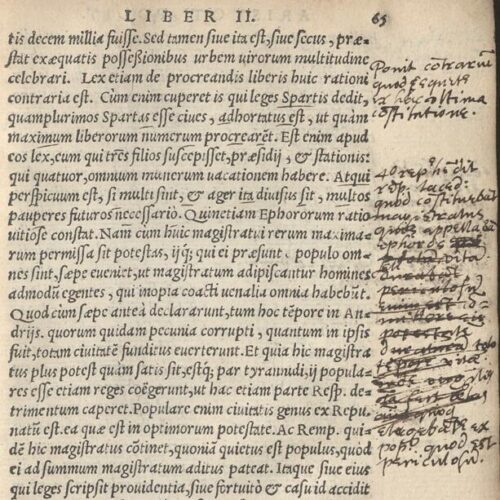 LIBER II.
65
tis decem millia fuisse. Sed tamen siue ita est, siue secus, præ-
stat exæquatis possessionibus urbem uirorum multitudine
celebrari. Lex etiam de procreandis liberis huic rationi
contraria est. Cùm enim cuperet is qui leges Spartis dedit,
quamplurimos Spartas esse ciues, adhortatus est, ut quàm
maximum liberorum numerum procrearēt. Est enim apud
eos lex, cum qui tres filios suscepisset, præsidij, & stationis:
qui quatuor, omnium munerum uacationem habere. Atqui
perspicuum est, si multi sint, & ager ita diuisus sit, multos
pauperes futuros necessariò. Quinetiam Ephororum ratio
uitiosè constat. Nam cùm huic magistratui rerum maxima-
rum permissa sit potestas, ijq; qui ei præsunt, populo om-
nes sint, sæpe euenit, ut magistratum adipiscantur homines
admodū egentes, qui inopia coacti uenalia omnia habebūt.
Quod cùm sæpe anteà declararunt, tum hoc tēpore in An-
drijs. quorum quidam pecunia corrupti, quantum in ipsis
fuit, totam ciuitatē funditus euerterunt. Et quia hic magistra
tus plus potest quàm satis sit, estq; par tyrannidi, ij popula-
res esse etiam reges coëgerunt, ut hac etiam parte Resp. de-
trimentum caperet. Populare enim ciuitatis genus ex Repu.
natū est. ea quæ est in optimorum potestate. Ac Remp. qui-
dē hic magistratus cōtinet, quonià quietus est populus, quòd
ei ad summum magistratum aditus pateat. Itaque siue eius
qui leges scripsit prouidentia, siue fortuitò & casu id accidit
Ponit cōtrariū
quod
ex hac ultima
cōstitutione.
resp. laced.
quod cōstituebāt
magistratus
quos appellabāt
ephoros
vita
potestate
tempore
eligebātur ex
popº. quod est
periculosū.